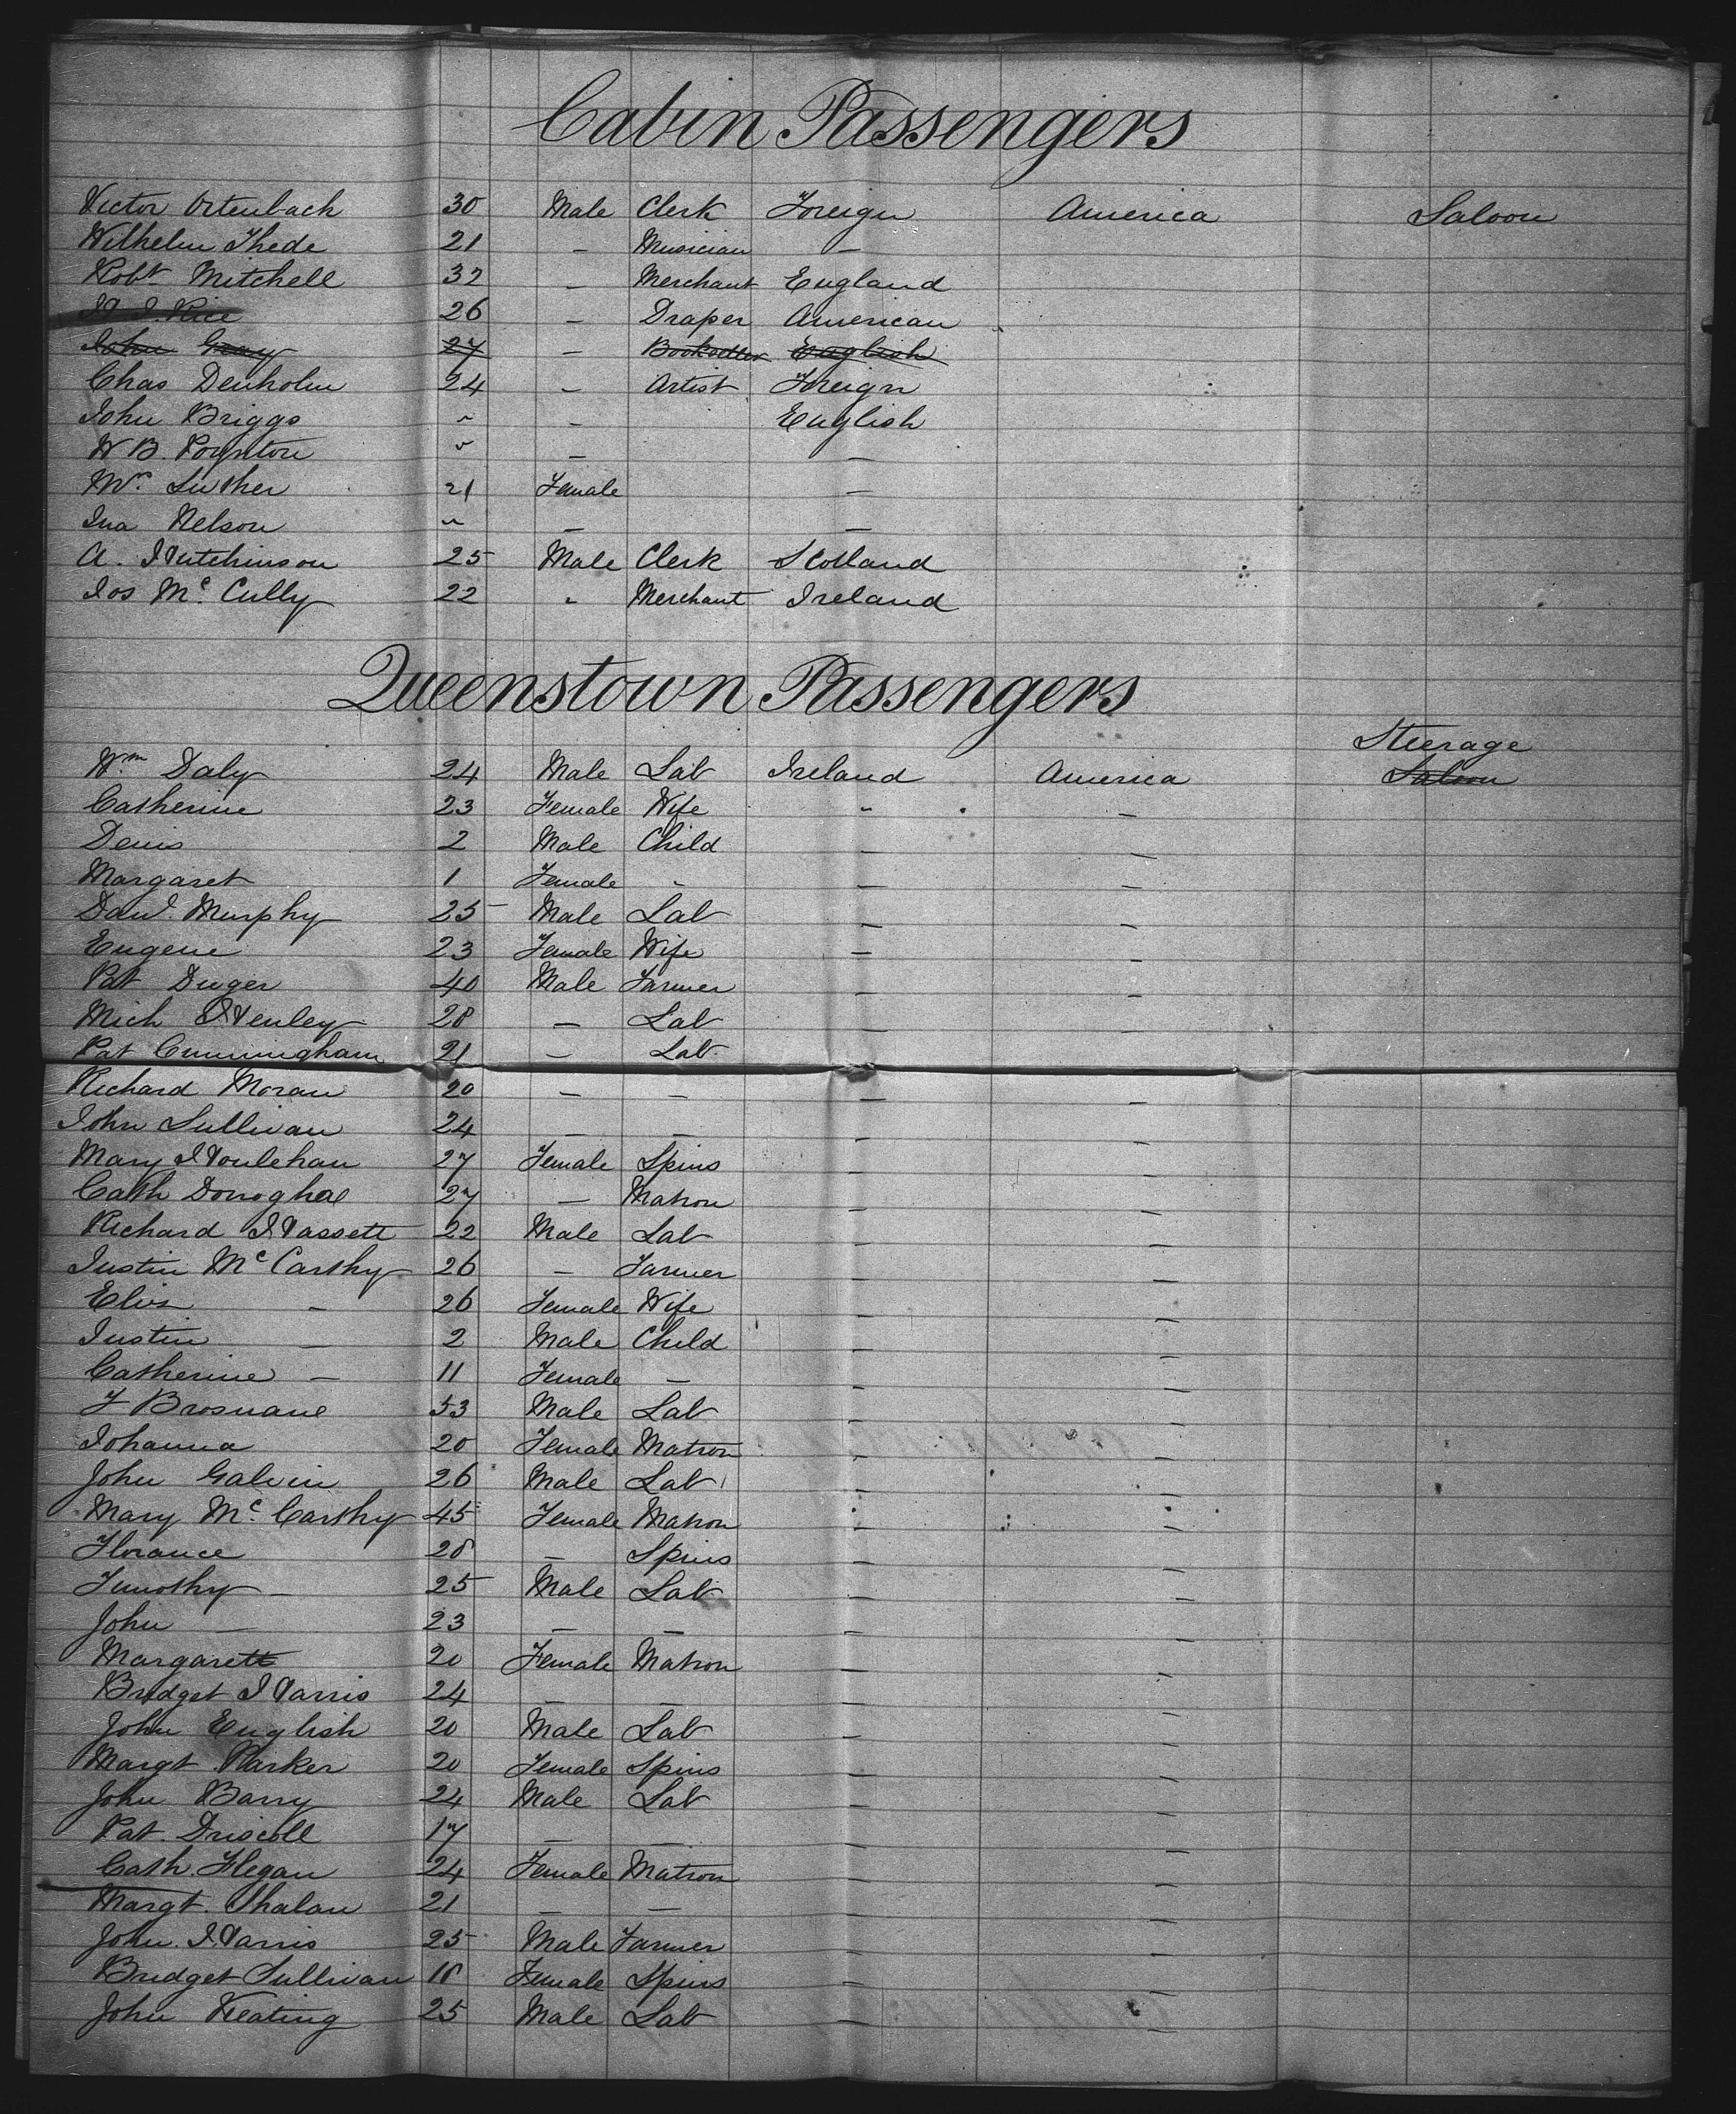 Cabin Passengers
Victor Ortenbach 30 Male Clerk Foreign America Saloon
Wilhelm Thede 21 – Musician –
Robt Mitchell 32 – Merchant England
H. J. Rice 26 – Draper American
John Gray 27 – Bookseller English
Chas Denholm 24 – Artist Foreign
John Briggs " – English
W B. Poynton " – –
Luther 21 Female –
Ina Nelson " – –
A. Hutchinson 25 Male Clerk Scotland
Jos Mc. Cully 22 " Merchant Ireland
Queenstown Passengers
Steerage
Wm Daly 24 Male Lab Ireland America Saloon
Catherine 23 Female Wife " –
Denis 2 Male Child – –
Margaret 1 Female " – –
Danl. Murphy 25 Male Lab – –
Eugene 23 Female Wife – –
Pat Dwger 40 Male Farmer – –
Mich Henley 28 – Lab – –
Pat Cunningham 21 – Lab – –
Richard Moran 20 – – – –
John Sullivan 24 – – – –
Mary Houlehan 27 Female Spins – –
Cath Donoghoe 27 – Matron – –
Richard Hassett 22 Male Lab – –
Justin Mc Carthy 26 – Farmer – –
– 26 Female Wife – –
Justin – 2 Male Child – –
Catherine – 11 Female – – –
Brosnane 53 Male Lab – –
Johanna 20 Female Matron – –
John Galvin 26 Male Lab – –
Mary Mc. Carthy 45 Female Matron – –
Florance 28 – Spins – –
Timothy – 25 Male Lab – –
John – 23 – – – –
Margarett 20 Female Matron – –
Bridget Harris 24 – – – –
John English 20 Male Lab – –
Margt Parker 20 Female Spins – –
John Barry 24 Male Lab – –
Pat. Driscoll 17 – – – –
Cath. Hegan 24 Female Matron – –
Margt. Phalan 21 – – – –
John. Harris 25 Male Farmer – –
Bridget Sullivan 18 Female Spins – –
John Keating 25 Male Lab – –